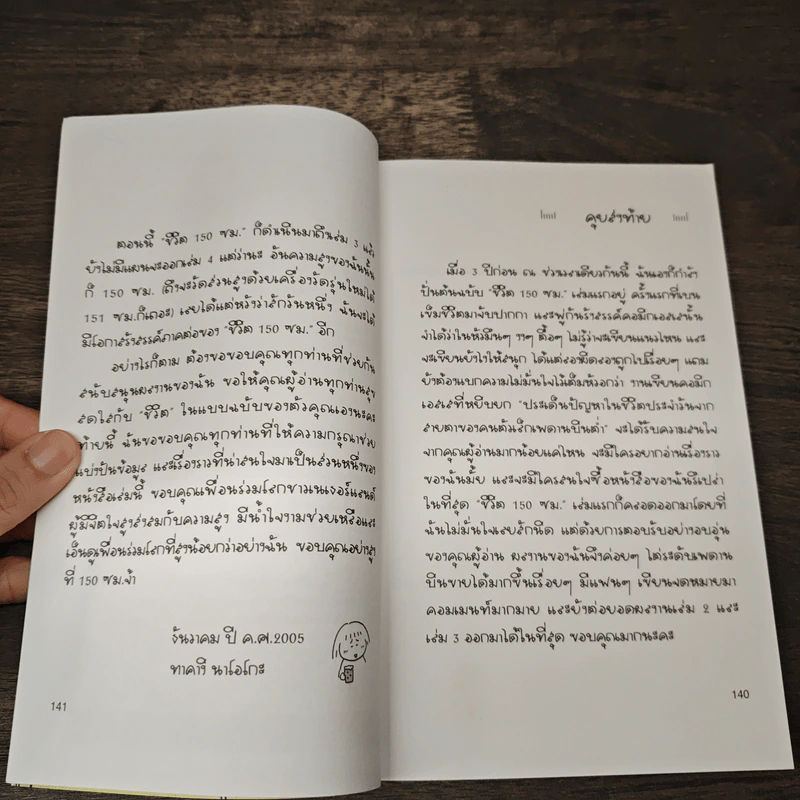 คุยส่งท้าย
เมื่อ 3 ปีก่อน ณ ช่วงเวลาเดียวกันนี้ ฉันเองก็กำลัง
ปั่นต้นฉบับ "ชีวิต 150 ซม." เล่มแรกอยู่ ครั้งแรกที่เบน
เข็มชีวิตมาจับปากกา และพู่กันรังสรรค์คอมิกเอสเสนั้น
จำได้ว่าในหัวมึนๆ งงๆ ตื้อๆ ไม่รู้ว่าจะเขียนแนวไหน และ
จะเขียนยังไงให้สนุก ได้แต่ลองผิดลองถูกไปเรื่อยๆ แถม
ยังต้องแบกความไม่มั่นใจไว้เต็มหัวอกว่า งานเขียนคอมิก
เอสเสที่หยิบยก "ประเด็นปัญหาในชีวิตประจำวันจาก
สายตาของคนตัวเล็กเพดานบินต่ำ" จะได้รับความสนใจ
จากคุณผู้อ่านมากน้อยแค่ไหน จะมีใครอยากอ่านเรื่องราว
ของฉันมั้ย และจะมีใครสนใจซื้อหนังสือของฉันรึเปล่า
ในที่สุด "ชีวิต 150 ซม." เล่มแรกก็คลอดออกมาโดยที่
ฉันไม่มั่นใจเลยสักนิด แต่ด้วยการตอบรับอย่างอบอุ่น
ของคุณผู้อ่าน ผลงานของฉันจึงค่อยๆ ไต่ระดับเพดาน
บินขายได้มากขึ้นเรื่อยๆ มีแฟนๆ เขียนจดหมายมา
คอมเมนท์มากมาย และยังต่อยอดผลงานเล่ม 2 และ
เล่ม 3 ออกมาได้ในที่สุด ขอบคุณมากนะคะ
140
ตอนนี้ "ชีวิต 150 ซม." ก็ดำเนินมาถึงเล่ม 3 แล้ว
ยังไม่มีแผนจะออกเล่ม 4 แต่ว่านะ อันความสูงของฉันนั้น
ก็ 150 ซม. (ถึงจะวัดส่วนสูงด้วยเครื่องวัดรุ่นใหม่ได้
151 ซม.ก็เถอะ) เลยได้แต่หวังว่าสักวันหนึ่ง ฉันจะได้
มีโอกาสรังสรรค์ภาคต่อของ "ชีวิต 150 ซม." อีก
อย่างไรก็ตาม ต้องขอขอบคุณทุกท่านที่ช่วยกัน
สนับสนุนผลงานของฉัน ขอให้คุณผู้อ่านทุกท่านสุข
สดใสกับ "ชีวิต" ในแบบฉบับของตัวคุณเองนะคะ
ท้ายนี้ ฉันขอขอบคุณทุกท่านที่ให้ความกรุณาช่วย
แบ่งปันข้อมูล และเรื่องราวที่น่าสนใจมาเป็นส่วนหนึ่งของ
หนังสือเล่มนี้ ขอบคุณเพื่อนร่วมโลกชาวเนเธอร์แลนด์
ผู้มีจิตใจสูงส่งสมกับความสูง มีน้ำใจงามช่วยเหลือและ
เอ็นดูเพื่อนร่วมโลกที่สูงน้อยกว่าอย่างฉัน ขอบคุณอย่างสูง
ที่ 150 ซม.จ้า
ธันวาคม ปี ค.ศ.2005
ทาคางิ นาโอโกะ
141